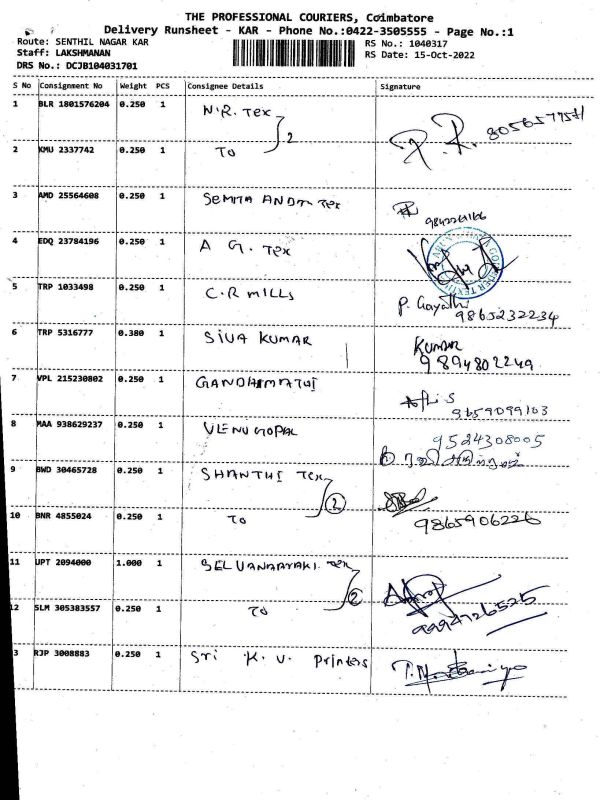 THE PROFESSIONAL COURIERS, Coimbatore
Delivery Runsheet - KAR - Phone No.:0422-3505555 - Page No.:1
Route: SENTHIL NAGAR KAR
RS No.: 1040317
Staff: LAKSHMANAN
RS Date: 15-Oct-2022
DRS No.: DCJB104031701
S No Consignment No Weight PCS Consignee Details Signature
1 BLR 1801576204 0.250 1 N.R. Tex 2
2 KMU 2337742 0.250 1 TO
3 AMD 25564608 0.250 1 Tex
4 EDQ 23784196 0.250 1 A G. Tex
5 TRP 1033498 0.250 1 C.R MILLS P. Gayathi
9865232234
6 TRP 5316777 0.380 1 SIVA KUMAR KUMAR
9894802249
7 VPL 215230802 0.250 1 GANDHIMATHI
9659099103
8 MAA 938629237 0.250 1 VENUGOPAL 9524308005
9 BWD 30465728 0.250 1 SHANTHI Tex 2
10 BNR 4855024 0.250 1 TO 9865906226
11 UPT 2094000 1.000 1 SELVANAYAKI Tex 2
12 SLM 305383557 0.250 1 TO 9994726525
3 RJP 3008883 0.250 1 Sri K. V. Printers